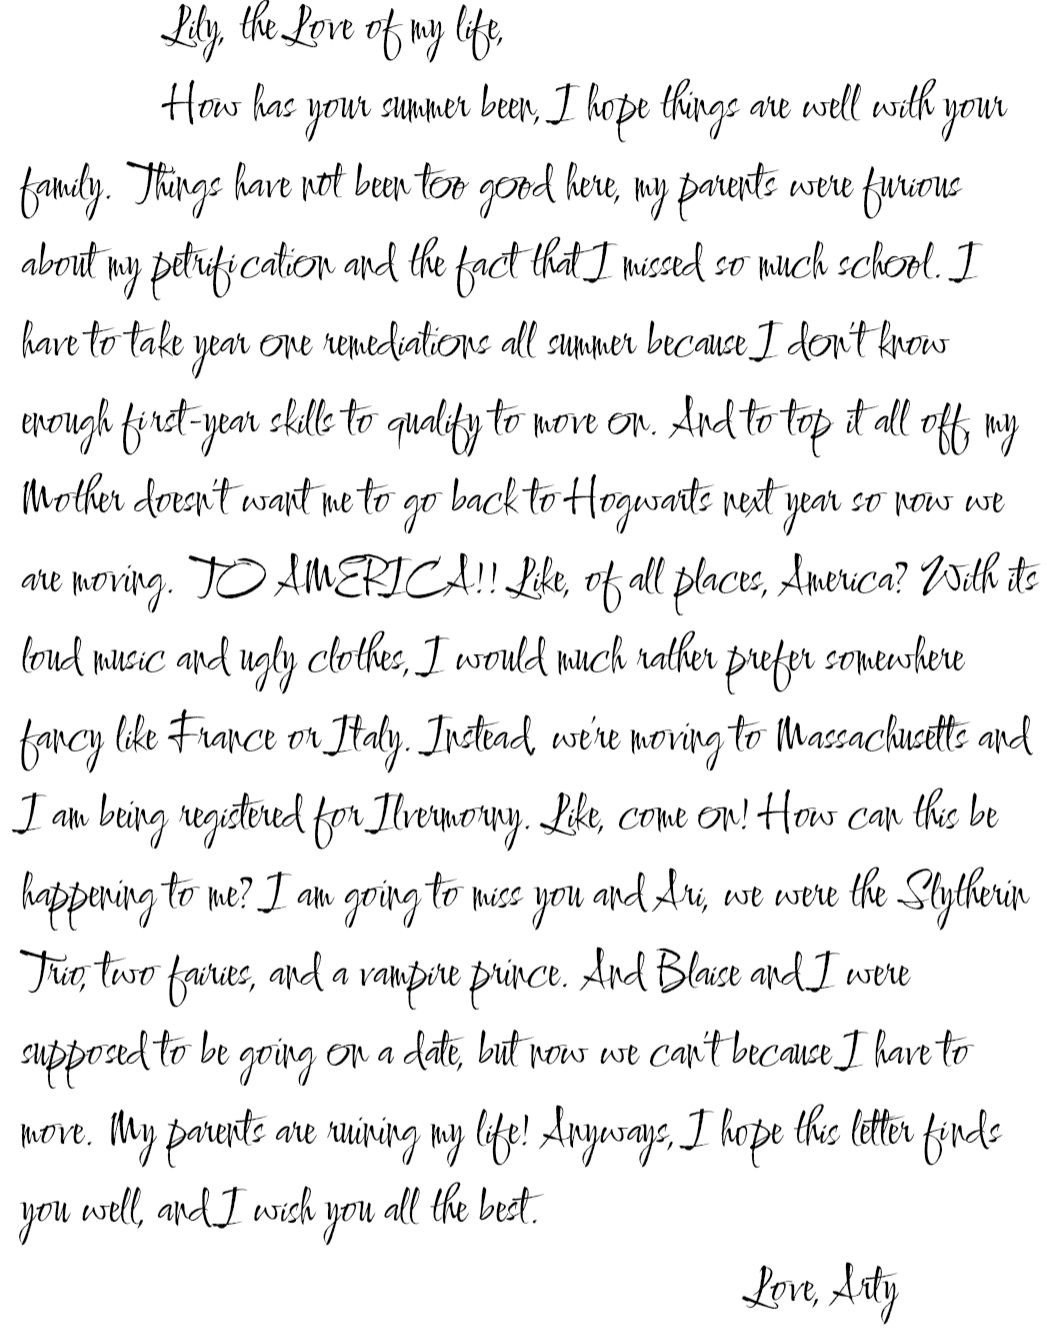 Lily, the Love of my life,
How has your summer been, I hope things are well with your
family. Things have not been too good here, my parents were furious
about my petrification and the fact that I missed so much school. I
have to take year one remediations all summer because I don't know
enough first-year skills to qualify to move on. And to top it all off, my
Mother doesn't want me to go back to Hogwarts next year so now we
are moving. TO AMERICA!! Like, of all places, America? With its
loud music and ugly clothes, I would much rather prefer somewhere
fancy like France or Italy. Instead, we're moving to Massachusetts and
I am being registered for Ilvermorny. Like, come on! How can this be
happening to me? I am going to miss you and Ari, we were the Slytherin
Trio, two fairies, and a vampire prince. And Blaise and I were
supposed to be going on a date, but now we can't because I have to
move. My parents are ruining my life! Anyways, I hope this letter finds
you well, and I wish you all the best.
Love, Arty